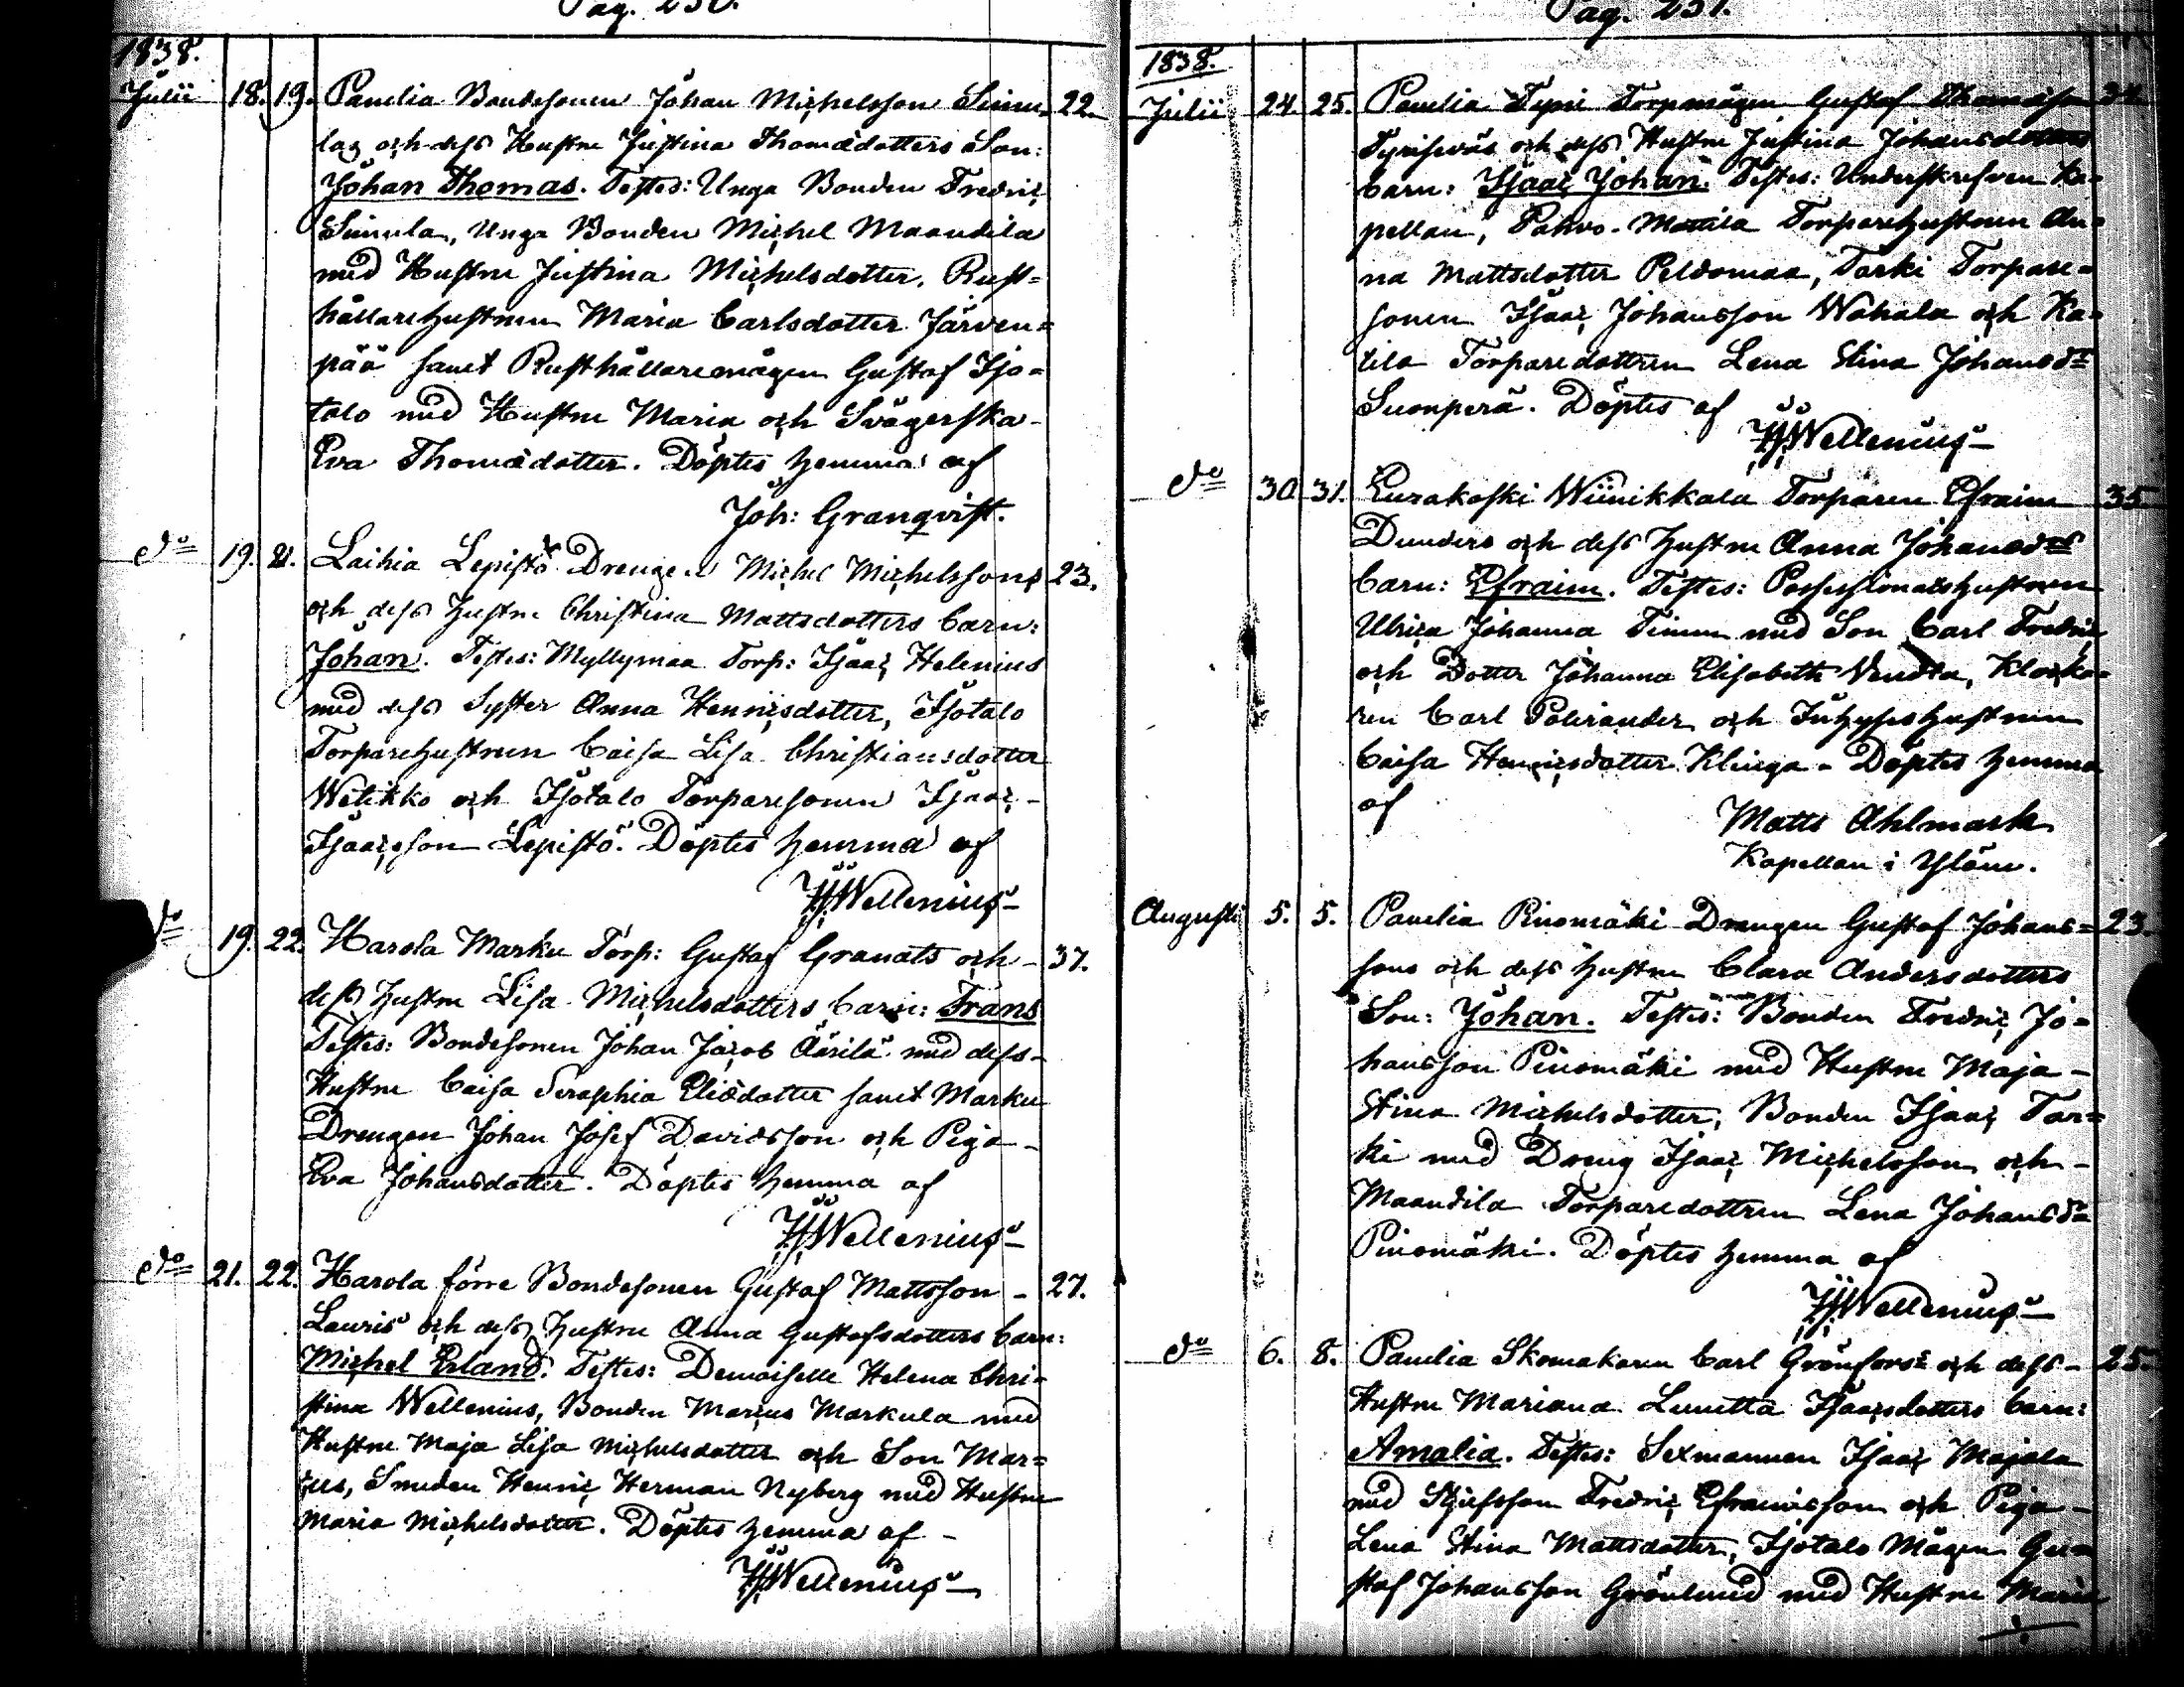 Pag. 230.
1838.
Julii 18. 19. Panelia Bondesonen Johan Michelsson Simu- 22.
las och dess Hustru Justina Thomædotters Son:
Johan Thomas. Testes: Unga Bonden Fredric
Simula, Unga Bonden Michel Maandila
med Hustru Justina Michelsdotter, Rust=
hållarehustrun Maria Carlsdotter Järven=
pää samt Rusthållaremågen Gustaf Iso=
talo med Hustru Maria och Svägerska
Eva Thomædotter. Döptes hemma af
Joh: Granqvist.
do 19. 21. Laihia Lepistö Drengen Michel Michelssons 23.
och dess hustru Christina Mattsdotters barn:
Johan. Testes: Myllymaa Torp: Isaac Helenius
med dess Syster Anna Henricsdotter, Isotalo
Torparehustrun Caisa Lisa Christiansdotter
Wetikko och Isotalo Torparesonen Isaac
Isaacsson Lepistö. Döptes hemma af
HJWellenius
do 19. 22. Harola Marku Torp: Gustaf Granats och 37.
dess hustru Lisa Michelsdotters barn: Frans
Testes: Bondesonen Johan Jacob Äärilä med dess
Hustru Caisa Seraphia Eliædotter samt Marku
Drengen Johan Josef Davidsson och Piga
Eva Johansdotter. Döptes hemma af
HJWellenius
do 21. 22. Harola förre Bondesonen Gustaf Mattsson 27.
Lauris och dess hustru Anna Gustafsdotters barn:
Michel Erland. Testes: Demoiselle Helena Chri=
stina Wellenius, Bonden Marcus Markula med
Hustru Maja Lisa Michelsdotter och Son Mar=
cus, Smeden Henric Herman Nyberg med Hustru
Maria Michelsdotter. Döptes hemma af
HJWellenius
Pag. 231.
1838.
Julii 24. 25. Panelia Tyni Torpmågen Gustaf Thomasson 34.
och dess Hustru Justina Johansdotters
barn: Isaac Johan. Testes: Underskrefven Ka=
pellan, Pahvo-Mattila Torparehustrun An=
na Mattsdotter Peldomaa, Tarki Torpare=
sonen Isaac Johansson Wahala och Ka=
tila Torparedottren Lena Stina Johansdr
Suonperä. Döptes af
HJWellenius
do 30. 31. Eurakoski Wiinikkala Torparen Efraim 35.
Dunders och dess hustru Anna Johansdrs
barn: Efraim. Testes: Possessionatshustrun
Ulrica Johanna Timm med Son Carl Fredric
och Dotter Johanna Elisabeth Vendla, Klocka=
ren Carl Polviander och Inhyseshustrun
Caisa Henricsdotter Klinga. Döptes hemma
af
Matts Ahlmark
Kapellan i Yläne.
Augusti 5. 5. Panelia Pinomäki Drengen Gustaf Johans= 23.
sons och dess hustru Clara Andersdotters
Son: Johan. Testes: Bonden Fredric Jo=
hansson Pinomäki med Hustru Maja
Stina Michelsdotter, Bonden Isaac Tar=
ki med Dreng Isaac Michelsson och
Maandila Torparedottren Lena Johansdr
Pinomäki. Döptes hemma af
HJWellenius
do 6. 8. Panelia Skomakaren Carl Grönfors och dess 25.
Hustru Mariana Lunetta Isaacsdotters barn:
Amalia. Testes: Sexmannen Isaac Majala
med Stjufson Fredric Efraimsson och Piga
Lena Stina Mattsdotter, Isotalo Mågen Gu=
staf Johansson Grönlund med Hustru Maria